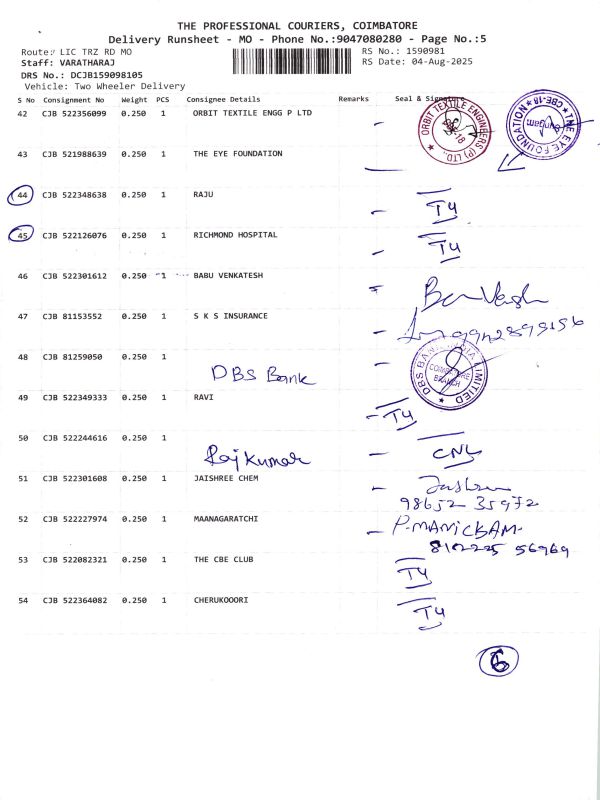 THE PROFESSIONAL COURIERS, COIMBATORE
Delivery Runsheet - MO - Phone No.:9047080280 - Page No.:5
Route: LIC TRZ RD MO RS No.: 1590981
Staff: VARATHARAJ RS Date: 04-Aug-2025
DRS No.: DCJB159098105
Vehicle: Two Wheeler Delivery
S No Consignment No Weight PCS Consignee Details Remarks Seal & Signature
42 CJB 522356099 0.250 1 ORBIT TEXTILE ENGG P LTD -
ORBIT TEXTILE ENGINEERS (P) LTD.
THE EYE FOUNDATION CBE-18
43 CJB 521988639 0.250 1 THE EYE FOUNDATION
44 CJB 522348638 0.250 1 RAJU - T4
45 CJB 522126076 0.250 1 RICHMOND HOSPITAL - T4
46 CJB 522301612 0.250 1 BABU VENKATESH -
47 CJB 81153552 0.250 1 S K S INSURANCE -
48 CJB 81259050 0.250 1 DBS Bank -
DBS BANK INDIA LIMITED COIMBATORE BRANCH
49 CJB 522349333 0.250 1 RAVI - T4
50 CJB 522244616 0.250 1 Rajkumar - CNL
51 CJB 522301608 0.250 1 JAISHREE CHEM -
98652 35972
52 CJB 522227974 0.250 1 MAANAGARATCHI - P. MANICKAM.
53 CJB 522082321 0.250 1 THE CBE CLUB T4
54 CJB 522364082 0.250 1 CHERUKOOORI T4